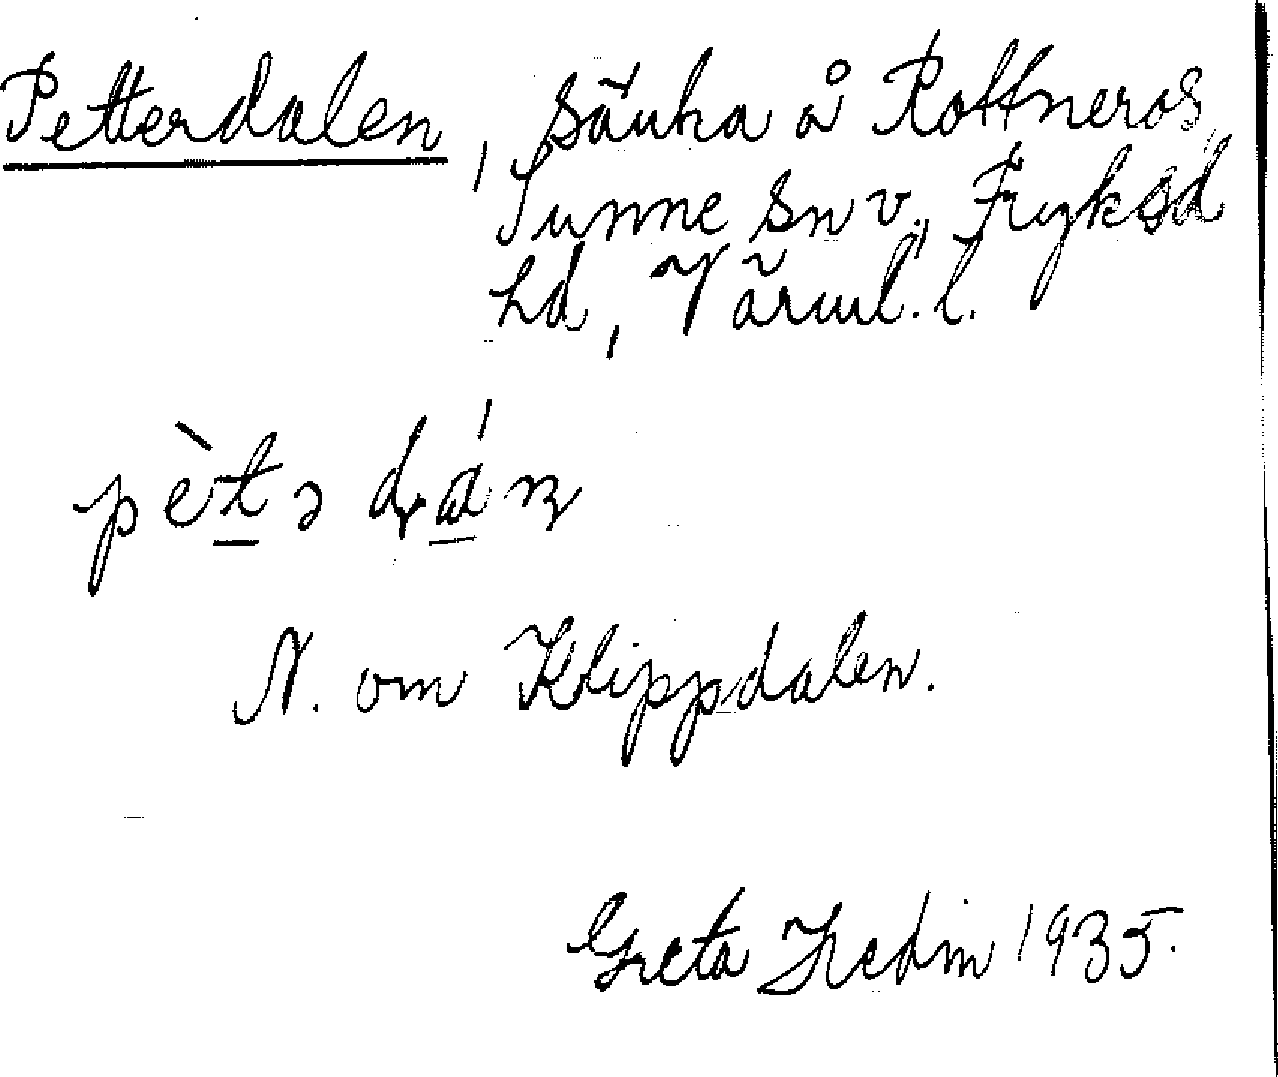 Petterdalen, sänka å Rottneros,
Sunne sn v., Fryksd
hd, Värml. l.
pètə dán
N. om Klippdalen.
Greta Hedin 1935.